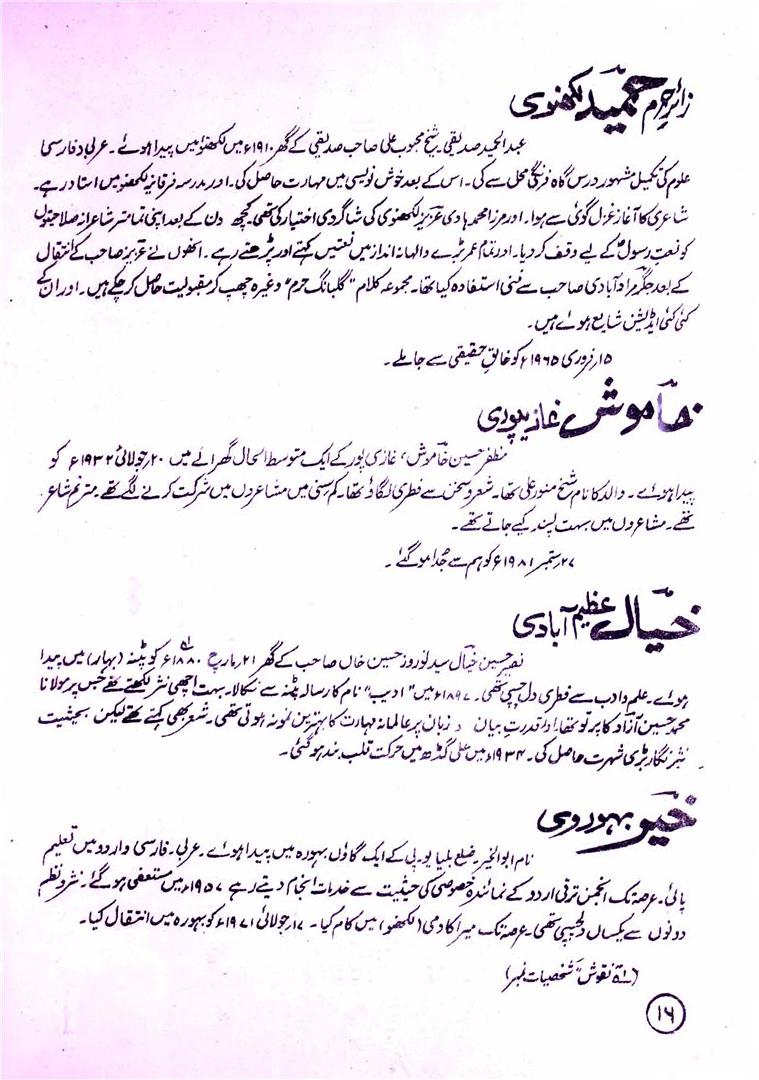 زائرِ حرم حمید لکھنوی
عبدالحمید صدیقی۔ شیخ محبوب علی صاحب صدیقی کے گھر ۱۹۱۰ء میں لکھنؤ میں پیدا ہوئے۔ عربی و فارسی
علوم کی تکمیل مشہور درس گاہ فرنگی محل سے کی۔ اس کے بعد خوش نویسی میں مہارت حاصل کی۔ اور مدرسہ فرقانیہ لکھنؤ میں استاد رہے۔
شاعری کا آغاز غزل گوئی سے ہوا۔ اور مرزا محمد ہادی عزیز لکھنوی کی شاگردی اختیار کی تھی۔ کچھ دن کے بعد اپنی تمامتر شاعرانہ صلاحیتوں
کو نعتِ رسولؐ کے لیے وقف کر دیا۔ اور تمام عمر بڑے والہانہ انداز میں نعتیں کہتے اور پڑھتے رہے۔ انھوں نے عزیز صاحب کے انتقال
کے بعد جگر مرادآبادی صاحب سے فنی استفادہ کیا تھا۔ مجموعہ کلام "گلبانگ حرم" وغیرہ چھپ کر مقبولیت حاصل کر چکے ہیں۔ اور ان کے
کئی کئی ایڈیشن شایع ہوے ہیں۔
۱۵ فروری ۱۹۶۵ء کو خالقِ حقیقی سے جا ملے۔
خاموش غازیپوری
مظفر حسین خاموش، غازی پور کے ایک متوسط الحال گھرانے میں ۲۰ جولائی ۱۹۳۲ء کو
پیدا ہوے۔ والد کا نام شیخ منور علی تھا۔ شعر و سخن سے فطری لگاؤ تھا۔ کم سنی میں مشاعروں میں شرکت کرنے لگے تھے۔ مترنم شاعر
تھے۔ مشاعروں میں بہت پسند کیے جاتے تھے۔
۲۷ ستمبر ۱۹۸۱ء کو ہم سے جُدا ہو گئے۔
خیال عظیم آبادی
نصیر حسین خیال سید نوروز حسین خاں صاحب کے گھر ۲۱ مارچ ۱۸۸۰ء کو پٹنہ (بہار) میں پیدا
ہوے۔ علم و ادب سے فطری دلچسپی تھی۔ ۱۸۹۷ء میں "ادیب" نام کا رسالہ پٹنہ سے نکالا۔ بہت اچھی نثر لکھتے تھے جس پر مولانا
محمد حسین آزاد کا پرتو تھا۔ اور قدرتِ بیان و زبان پر عالمانہ مہارت کا بہترین نمونہ ہوتی تھی۔ شعر بھی کہتے تھے لیکن بحیثیت
نثر نگار بڑی شہرت حاصل کی۔ ۱۹۳۴ء میں علی گڈھ میں حرکت قلب بند ہو گئی۔
خیر بہوروی
نام ابوالخیر۔ ضلع بلیا یو۔پی کے ایک گاؤں بہورہ میں پیدا ہوے۔ عربی۔ فارسی و اردو میں تعلیم
پائی۔ عرصہ تک انجمن ترقی اردو کے نمائندۂ خصوصی کی حیثیت سے خدمات انجام دیتے رہے ۱۹۵۷ء میں مستعفی ہو گئے۔ نثر و نظم
دونوں سے یکساں دلچسپی تھی۔ عرصہ تک میر اکادمی (لکھنؤ) میں کام کیا۔ ۱۷ جولائی ۱۹۷۱ء کو بہورہ میں انتقال کیا۔
(لہ نقوش "شخصیات نمبر)
۱۶